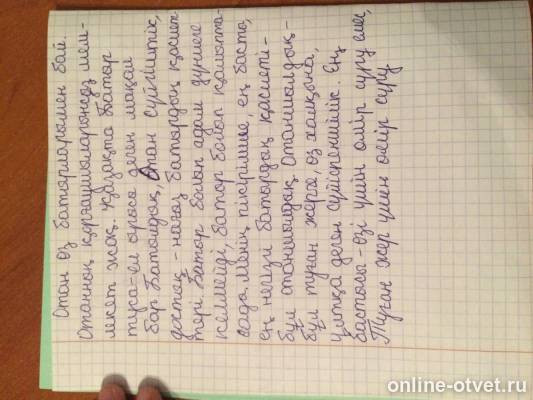 Отан өз батырларымен бай.
Отанның қорғаушыларынсыз мем-
лекет жоқ. Қазақта Батыр
тура-ел арысы деген мақал
бар. Батылдық, Отан сүйгіштік,
достық - нағыз батырдың қасиет-
тері. Батыр болып адам дүниеге
келмейді, батыр болып қалыпта-
сады. Менің пікірімше, ең басты,
ең негізгі батырдың қасиеті-
бұл отаншылдық. Отаншылдық-
бұл туған жерге, өз халқына,
ұлтқа деген сүйіспеншілік. Ең
бастысы - өзі үшін өмір сүру емес,
Туған жер үшін өмір сүру
online-otvet.ru